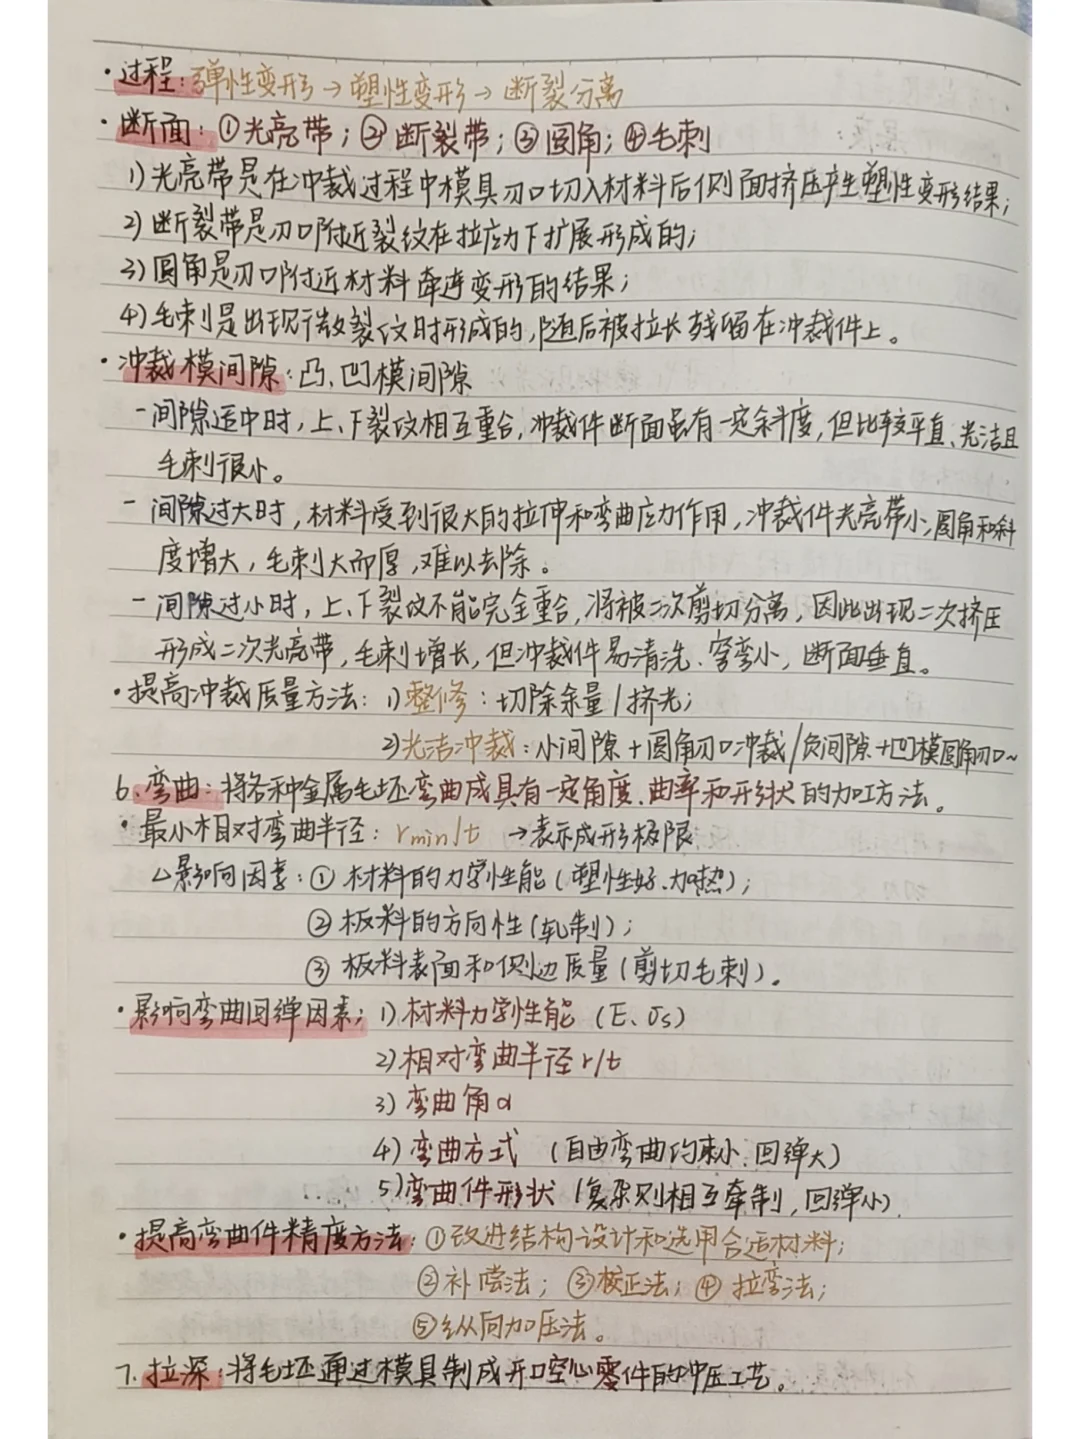 ·过程：弹性变形→塑性变形→断裂分离
·断面：①光亮带；②断裂带；③圆角；④毛刺
1)光亮带是在冲裁过程中模具刃口切入材料后侧面挤压产生塑性变形结果；
2)断裂带是刃口附近裂纹在拉应力下扩展形成的；
3)圆角是刃口附近材料牵连变形的结果；
4)毛刺是出现微裂纹时形成的，随后被拉长残留在冲裁件上。
·冲裁模间隙：凸、凹模间隙
-间隙适中时，上、下裂纹相互重合，冲裁件断面虽有一定斜度，但比较平直、光洁且
毛刺很小。
-间隙过大时，材料受到很大的拉伸和弯曲应力作用，冲裁件光亮带小，圆角和斜
度增大，毛刺大而厚，难以去除。
-间隙过小时，上、下裂纹不能完全重合，将被二次剪切分离，因此出现二次挤压
形成二次光亮带，毛刺增长，但冲裁件易清洗、穹弯小，断面垂直。
·提高冲裁质量方法：1)整修：切除余量/挤光；
2)光洁冲裁：小间隙+圆角刃口冲裁/负间隙+凹模圆角刃口~
6.弯曲：将各种金属毛坯弯曲成具有一定角度、曲率和形状的加工方法。
·最小相对弯曲半径：rmin/t →表示成形极限
△影响因素：①材料的力学性能(塑性好、加热)；
②板料的方向性(轧制)；
③板料表面和侧边质量(剪切毛刺)。
·影响弯曲回弹因素：1)材料力学性能(E、σs)
2)相对弯曲半径r/t
3)弯曲角α
4)弯曲方式(自由弯曲约束小、回弹大)
5)弯曲件形状(复杂则相互牵制，回弹小)
·提高弯曲件精度方法：①改进结构设计和选用合适材料；
②补偿法；③校正法；④拉弯法；
⑤纵向加压法。
7.拉深：将毛坯通过模具制成开口空心零件的冲压工艺。